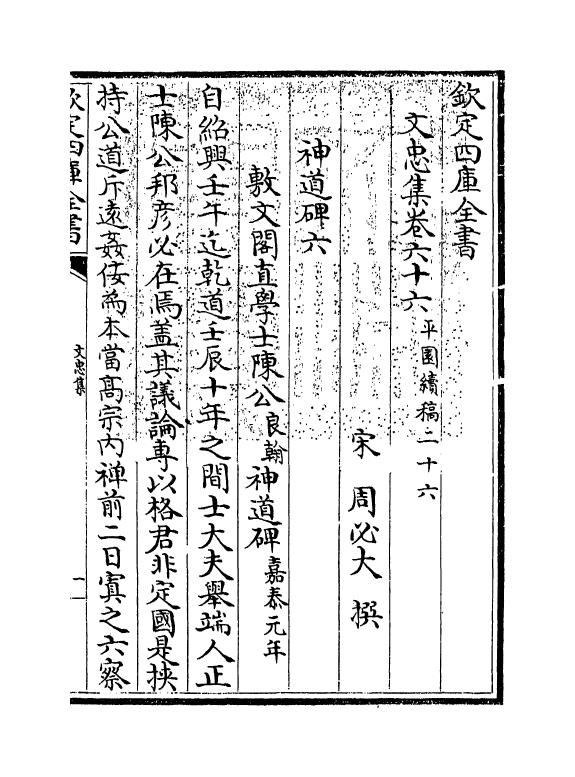 欽定四庫全書
文忠集卷六十六 平園續稿二十六
宋 周必大 撰
神道碑六
敷文閣直學士陳公良翰神道碑 嘉泰元年
自紹興壬午迄乾道壬辰十年之間士大夫舉端人正
士陳公邦彦必在焉盖其議論専以格君非定國是挟
持公道斥遠姦佞為本當髙宗内禅前二日寘之六察
欽定四庫全書
文忠集
一